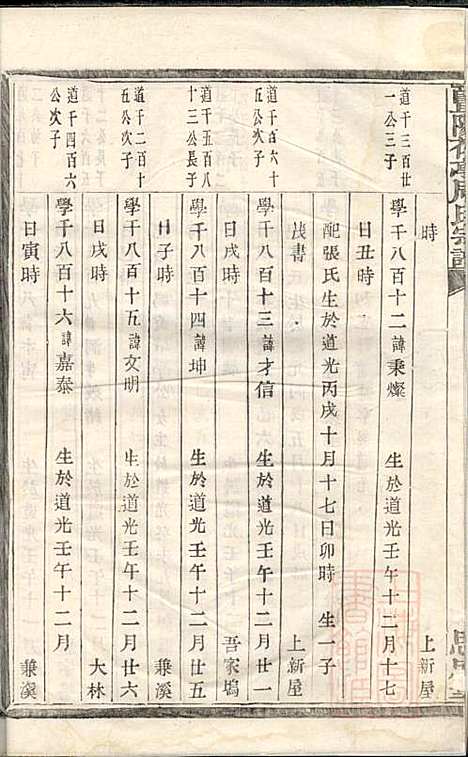 時
上新屋
道千三百廿
一公三子
學千八百十二諱秉燦
生於道光壬午十二月十七
日丑時
配張氏生於道光丙戌十月十七日卯時
生一子
茂書
上新屋
道千百六十
五公次子
學千八百十三諱才信
生於道光壬午十二月
日戌時
吾家塢
道千五百八
十三公長子
學千八百十四諱坤
生於道光壬午十二月廿五
日子時
兼溪
道千二百十
五公次子
學千八百十五諱文明
生於道光壬午十二月廿六
日戌時
大林
道千四百六
公次子
學千八百十六諱嘉泰
生於道光壬午十二月
日寅時
兼溪